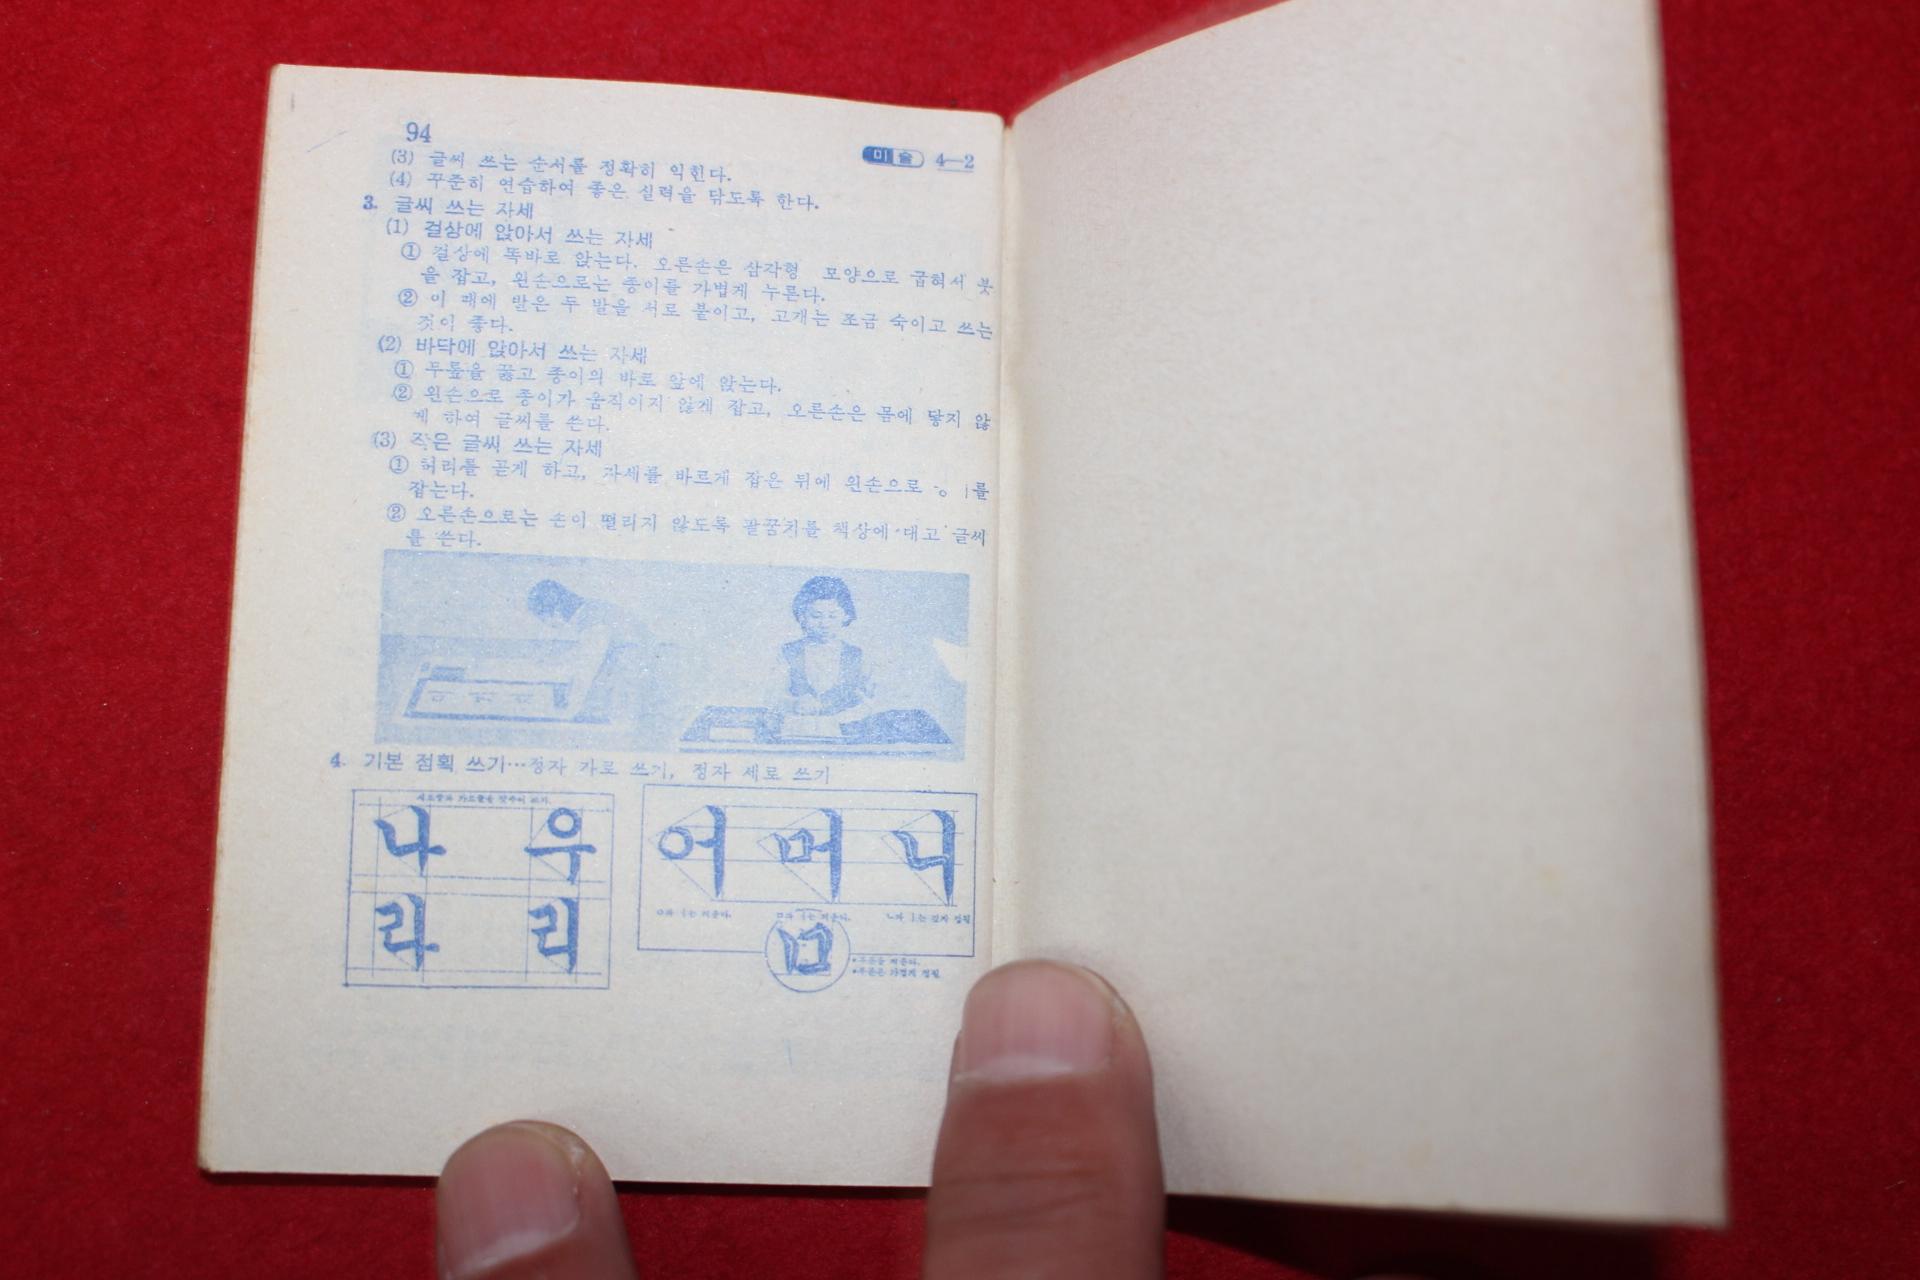 94
미술 4-2
(3) 글씨 쓰는 순서를 정확히 익힌다.
(4) 꾸준히 연습하여 좋은 실력을 닦도록 한다.
3. 글씨 쓰는 자세
(1) 걸상에 앉아서 쓰는 자세
① 걸상에 똑바로 앉는다. 오른손은 삼각형 모양으로 굽혀서 붓
을 잡고, 왼손으로는 종이를 가볍게 누른다.
② 이 때에 발은 두 발을 서로 붙이고, 고개는 조금 숙이고 쓰는
것이 좋다.
(2) 바닥에 앉아서 쓰는 자세
① 무릎을 꿇고 종이의 바로 앞에 앉는다.
② 왼손으로 종이가 움직이지 않게 잡고, 오른손은 몸에 닿지 않
게 하여 글씨를 쓴다.
(3) 작은 글씨 쓰는 자세
① 허리를 곧게 하고, 자세를 바르게 잡은 뒤에 왼손으로 를
잡는다.
② 오른손으로는 손이 떨리지 않도록 팔꿈치를 책상에 대고 글씨
를 쓴다.
4. 기본 점획 쓰기…정자 가로 쓰기, 정자 세로 쓰기
나 우
라 리
어 머 니
ㅇ과 ㅓ는 띄운다. ㅁ과 ㅓ는 띄운다. ㄴ과 ㅣ는
ㅁ